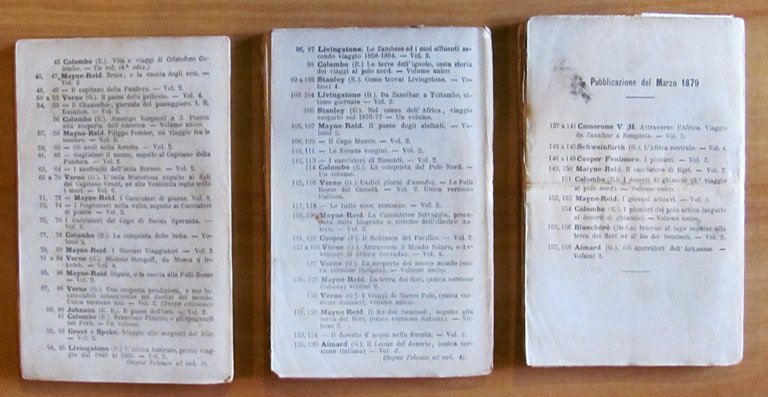 45 Colombo (E.). Vita e viaggi di Cristoforo Co-
lombo. — Un vol. (4.ª ediz.).
46, 47 Mayne-Reid. Bruin, o la caccia degli orsi. —
Vol. 2.
48, 49 — Il capitano della Pandora. — Vol. 2.
50 a 53 Verne (G.). Il paese delle pelliccie. — Vol. 4.
54, 55 — Il Chancellor, giornale del passeggiero. I. R.
Kazallon. — Vol. 2.
56 Colombo (E.). Amerigo Vespucci e J. Pinzon
alla scoperta dell'America. — Volume unico.
57, 58 Mayne-Reid. Filippo Forster, un viaggio fra le
tenebre. — Vol. 2.
59, 60 — Gli esuli nella foresta. — Vol. 2.
61, 62 — Guglielmo il mozzo, seguito al Capitano della
Pandora. — Vol. 2.
63, 64 — I naufraghi dell'isola Borneo. — Vol. 2.
65 a 70 Verne (G.). L'isola Misteriosa seguito ai figli
del Capitano Grant, ed alle Ventimila leghe sotto
i mari. — Vol. 6.
71, 72 — Mayne-Reid. I Cacciatori di piante. Vol. 2.
73, 74 — I Prigionieri nella valle, seguito ai Cacciatori
di piante. — Vol. 2.
75, 76 I Cacciatori del Capo di Buona Speranza. —
Vol. 2.
77, 78 Colombo (E.). La conquista delle Indie. — Vol. 2.
79, 80 Mayne Reid. I Giovani Viaggiatori — Vol. 2.
81 a 84 Verne (G.). Michele Strogoff, da Mosca a Ir-
kutsk. — Vol. 4.
85, 86 Mayne-Reid. Séguin, o la caccia alle Pelli-Rosse
— Vol. 2.
87, 88 Verne (G.). Una scoperta prodigiosa, e sue in-
calcolabili conseguenze sui destini del mondo.
Unica versione ital. — Vol. 2. (Terza edizione).
89, 90 Johnson (R. B.). Il paese dell'oro. — Vol. 2.
91 Colombo (E.). Francesco Pizarro, e gli spagnuoli
nel Perù. — Un volume.
92, 93 Grant e Speke. Viaggio alle sorgenti del Nilo.
— Vol. 2.
94, 95 Livingstone (D.). L'Africa Australe, primo viag-
gio dal 1840 al 1856. — Vol. 2.
(Segue l'elenco al vol. 3).
96, 97 Livingstone. Lo Zambese ed i suoi affluenti se-
condo viaggio 1858-1864. — Vol. 2.
98 Colombo (E.). Le terre dell'ignoto, ossia storia
dei viaggi al polo nord. — Volume unico.
99 a 102 Stanley (E.). Come trovai Livingstone. — Vo-
lumi 4.
103, 104 Livingstone (D.). Da Zanzibar a Tcitambo, ul-
timo giornale. — Vol. 2.
105 Stanley (E.). Nel cuore dell'Africa, viaggio
eseguito nel 1876-77 — Un volume.
106, 107 Mayne-Reid. Il paese degli elefanti. — Vo-
lumi 2.
108, 109 — Il Capo bianco. — Vol. 2.
110, 111 — Le foreste vergini. — Vol. 2.
112, 113 — I cacciatori di Bisonti. — Vol. 2.
114 Colombo (E.). La conquista del Polo Nord. —
Un volume.
115, 116 Verne (G.) Undici giorni d'assedio. — Le Pelli
Rosse del Canadà. — Vol. 2. Unica versione
italiana.
117, 118 — Le Indie nere, romanzo. — Vol. 2.
119, 120 Mayne-Reid. La Cacciatrice Selvaggia, prece-
duta dalla biografia e ritratto dell'illustre Au-
tore. — Vol. 2.
121, 122 Cooper (F.). Il Robinson del Pacifico. — Vol. 2.
123 a 126 Verne (G.). Attraverso il Mondo Solare, o Av-
venture di Ettore Servadac. — Vol. 4.
127 Verne (G.). La scoperta del nuovo mondo (unica
versione italiana). Volume unico.
128, 129 Mayne-Reid. La terra dei fiori, (unica versione
italiana) volumi 2
130 Verne (G.) I viaggi di Marco Polo, (unica ver-
sione italiana), volume unico.
131, 132 Mayne-Reid. Il Re dei Seminoli, seguito alla
terra dei fiori, (unica versione italiana). — Vo-
lumi 2.
133, 134 — Il deserto d'acqua nella foresta. — Vol. 2.
135, 136 Aimard (G.). Il Leone del deserto, (unica ver-
sione italiana) — Vol. 2.
(Segue l'elenco al vol. 4).
Pubblicazione del Marzo 1879
137 a 141 Camerone V. H. Attraverso l'Africa. Viaggio
da Zanzibar a Benguela. — Vol. 5.
142 a 145 Schweinfurth (G.). L'Africa centrale. — Vol. 4
146 a 148 Cooper Fenimore. I pionieri. — Vol. 3.
149, 150 Mayne-Reid. Il cacciatore di tigri. — Vol. 2.
151 Colombo (E.). I deserti di ghiaccio (2.º viaggio
al polo nord). — Volume unico.
152, 153 Mayne-Reid. I giovani schiavi. — Vol. 2.
154 Colombo (E.). I pionieri del polo artico (seguito
ai deserti di ghiaccio). — Volume unico.
155, 156 Blanchéré (De La) Intorno al lago seguito alla
terra dei fiori ed al Re dei Seminoli. — Vol. 2.
157, 158 Aimard (G.). Gli scorridori dell'Arkansas. —
Volumi 2.